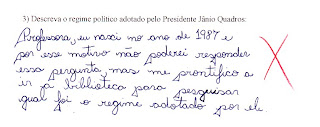 3) Descreva o regime político adotado pelo Presidente Jânio Quadros:
Professora, eu nasci no ano de 1987 e
por esse motivo não poderei responder
essa pergunta, mas me prontifico a
ir à biblioteca para pesquisar
qual foi o regime adotado por ele.